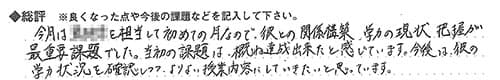 ◆総評 ※良くなった点や今後の課題などを記入して下さい。
今月は を担当して初めての月なので、彼との関係構築 学力の現状 把握が
最重要課題でした。当初の課題は 概ね達成出来たと感じています。今後は、彼の
学力状況を確認しつつ、よりよい授業内容にしていきたいと思っています。